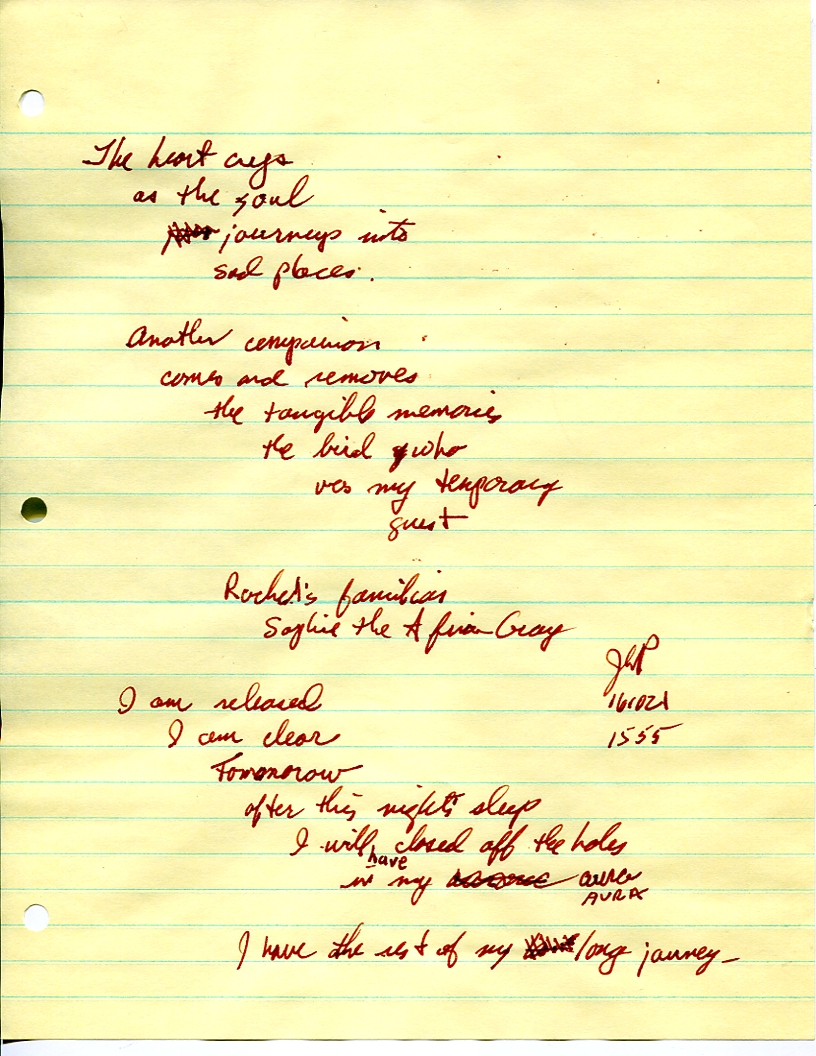 The heart crys
as the soul
journeys into
sad places.
Another companion
comes and removes
the tangible memories
the bird who
was my temporary
guest
Rachel's familiar
Sophie the African Gray
JWP
161021
1555
I am released
I am clear
Tomorrow
after this night's sleep
I will have closed off the holes
in my aura
AURA
I have the rest of my long journey_